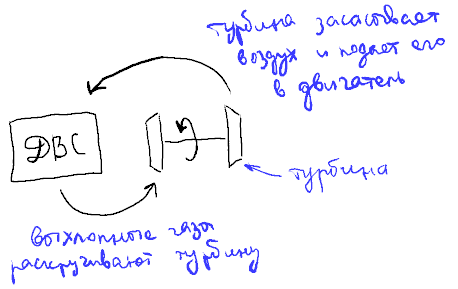 турбина засасывает
воздух и подает его
в двигатель
ДВС
турбина
выхлопные газы
раскручивают турбину